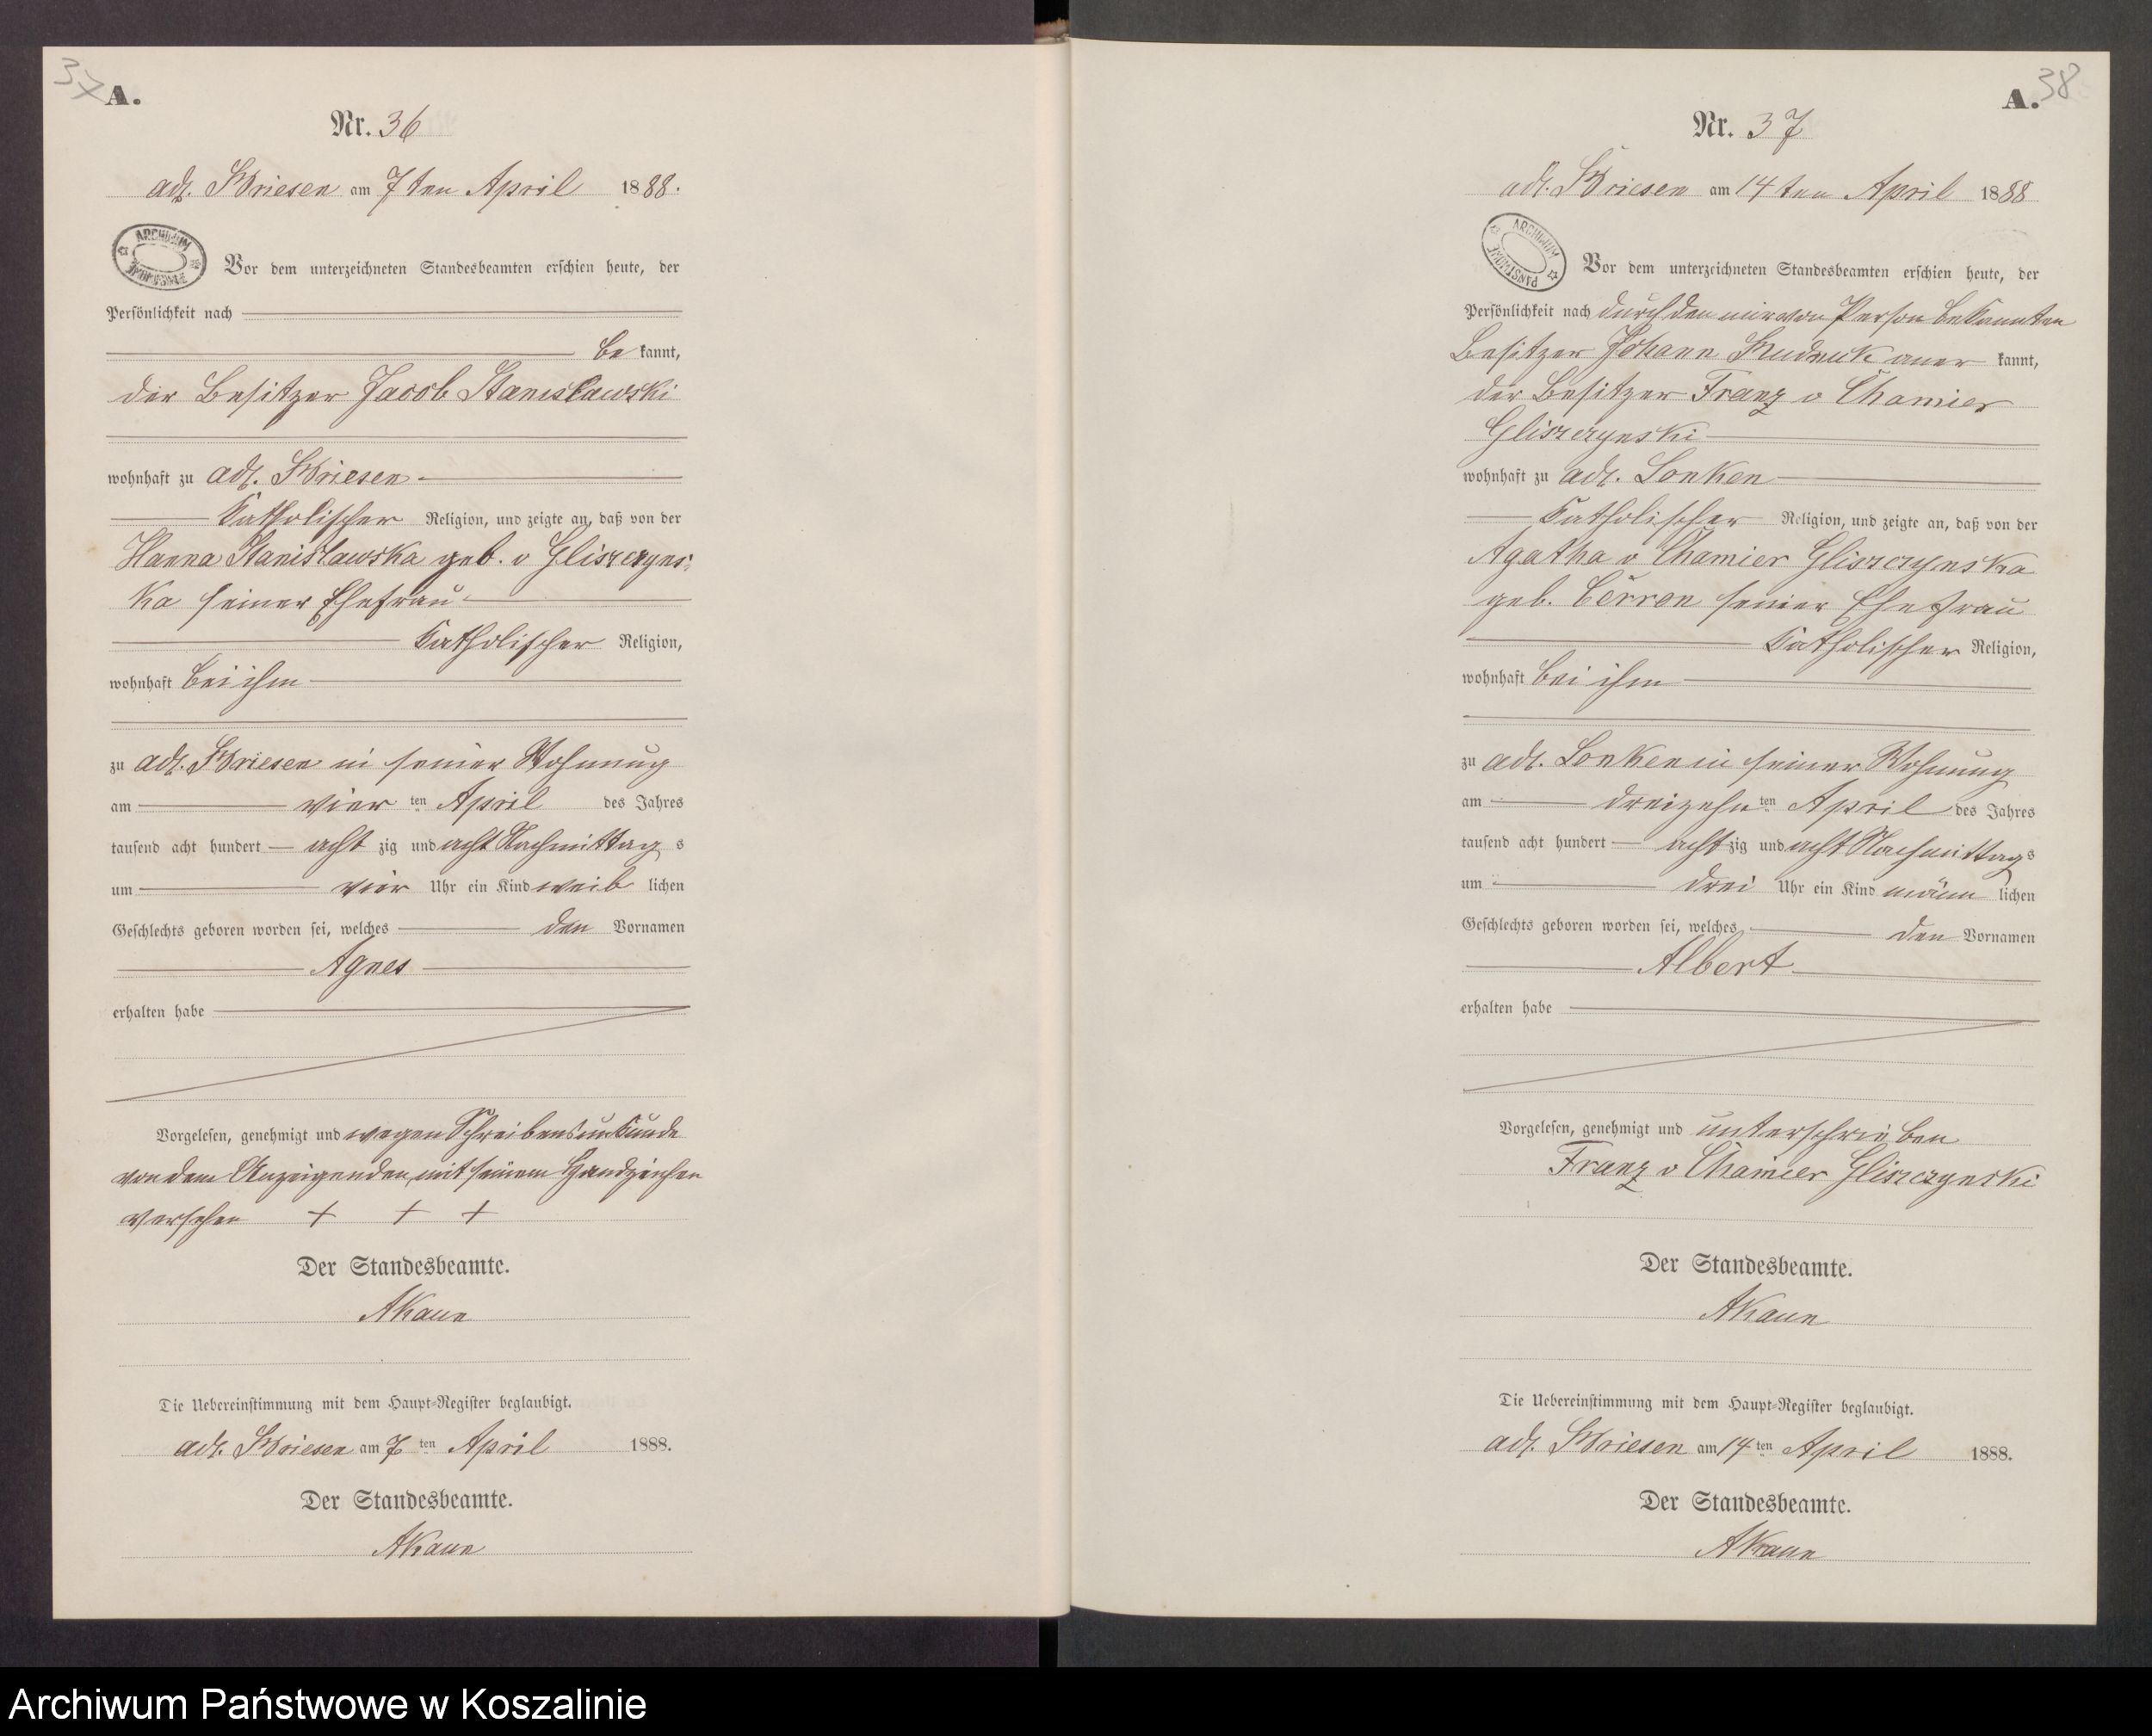 37
A.
Nr. 36
adl. Briesen am 7ten April 1888.
ARCHIWUM PAŃSTWOWE
Vor dem unterzeichneten Standesbeamten erschien heute, der
Persönlichkeit nach
be kannt,
der Besitzer Jacob Stanisławski
wohnhaft zu adl. Briesen
Katholischer Religion, und zeigte an, daß von der
Hanna Stanisławska geb. v Gliszczyns-
ka seiner Ehefrau
Katholischer Religion,
wohnhaft bei ihm
zu adl. Briesen in seiner Wohnung
am vier ten April des Jahres
tausend acht hundert acht zig und acht Nachmittag s
um vier Uhr ein Kind weib lichen
Geschlechts geboren worden sei, welches den Vornamen
Agnes
erhalten habe
Vorgelesen, genehmigt und wegen Schreibensunkunde
von dem Anzeigenden mit seinem Handzeichen
versehen + + +
Der Standesbeamte.
AKaun
Die Uebereinstimmung mit dem Haupt-Register beglaubigt.
adl. Briesen am 7 ten April 1888.
Der Standesbeamte.
AKaun
38
A.
Nr. 37
adl. Briesen am 14 ten April 1888
ARCHIWUM PAŃSTWOWE
Vor dem unterzeichneten Standesbeamten erschien heute, der
Persönlichkeit nach durch den mir von Person bekannten
Besitzer Johann aner kannt,
der Besitzer Franz v Chamier
Gliszczynski
wohnhaft zu adl. Lonken
Katholischer Religion, und zeigte an, daß von der
Agatha v Chamier Gliszczynska
geb. seiner Ehefrau
Katholischer Religion,
wohnhaft bei ihm
zu adl. Lonken in seiner Wohnung
am dreizehn ten April des Jahres
tausend acht hundert acht zig und acht Nachmittag s
um drei Uhr ein Kind männ lichen
Geschlechts geboren worden sei, welches den Vornamen
Albert
erhalten habe
Vorgelesen, genehmigt und unterschrieben
Franz v Chamier Gliszczynski
Der Standesbeamte.
AKaun
Die Uebereinstimmung mit dem Haupt-Register beglaubigt.
adl. Briesen am 14 ten April 1888.
Der Standesbeamte.
AKaun
Archiwum Państwowe w Koszalinie